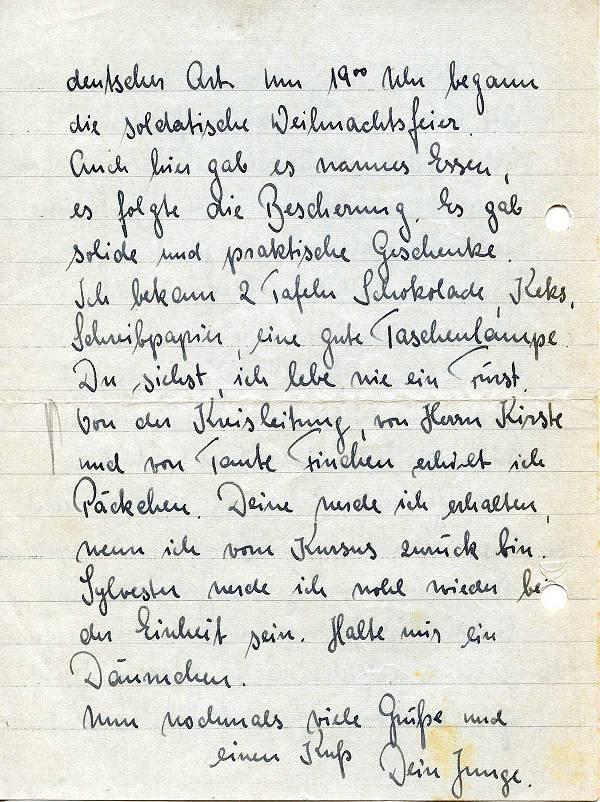 deutscher Art. Um 19⁰⁰ Uhr begann
die soldatische Weihnachtsfeier.
Auch hier gab es warmes Essen,
es folgte die Bescherung. Es gab
solide und praktische Geschenke.
Ich bekam 2 Tafeln Schokolade, Keks,
Schreibpapier, eine gute Taschenlampe.
Du siehst, ich lebe wie ein Fürst.
Von der Kreisleitung, von Herrn Kirste
und von Tante Finchen erhielt ich
Päckchen. Deine werde ich erhalten,
wenn ich vom Kursus zurück bin.
Sylvester werde ich wohl wieder bei
der Einheit sein. Halte mir ein
Däumchen.
Nun nochmals viele Grüße und
einen Kuß Dein Junge.